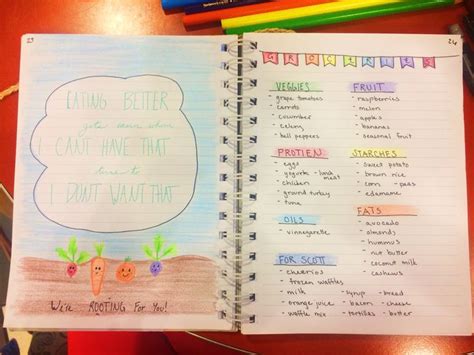 23
EATING BETTER
gets easier when
I CAN'T HAVE THAT
turns to
I DON'T WANT THAT
We're ROOTING For You!
24
GROCERIES
VEGGIES
- grape tomatoes
- carrots
- cucumber
- celery
- bell peppers
FRUIT
- raspberries
- melon
- apples
- bananas
- seasonal fruit
PROTIEN
- eggs
- yogurt - lunch meat
- chicken
- ground turkey
- tuna
STARCHES
- sweet potato
- brown rice
- corn - peas
- edamame
OILS
- vinnegarette
FATS
- avocado
- almonds
- hummus
- nut butter
- coconut milk
- cashews
FOR SCOTT
- cheerios
- frozen waffles
- milk - syrup - bread
- orange juice - bacon - cheese
- waffle mix - tortillas - butter